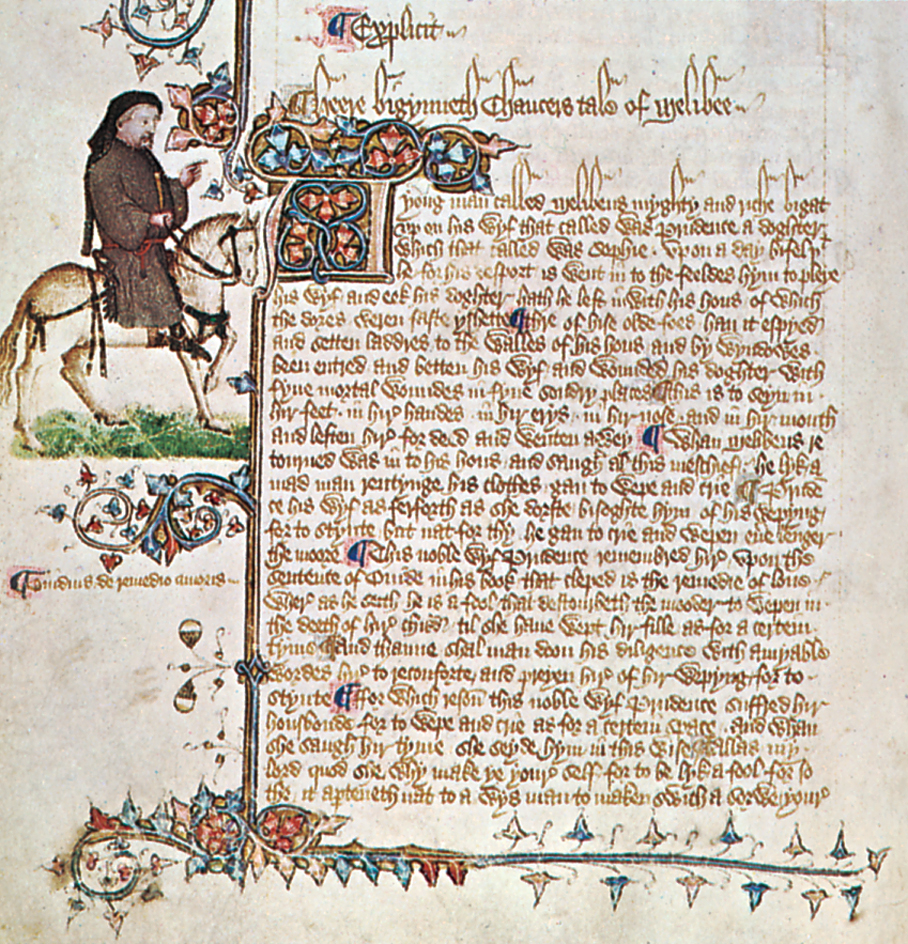 ¶ Explicit
¶ Heere bigynneth Chaucers tale of Melibee
A yong man called Melibeus myghty and riche bigat
up on his wyf that called was Prudence a doghter
which that called was Sophie · Vpon a day bifel þt
he for his desport is went in to the feeldes hym to pleye
his wyf and eek his doghter hath he left in with his hous of which
the dores weren faste yshette ¶ Thre of hise olde foes han it espyed
and setten laddres to the walles of his hous and by wyndowes
been entred and betten his wyf and wounded his doghter with
fyue mortal woundes in fyue sondry places ¶ this is to seyn in
hir feet · in hir handes · in hir erys · in hir nose · and in hir mouth
and leften hir for deed and wenten awey ¶ Whan Melibeus re
tourned was in to his hous and saugh al this meschief · he lyk a
mad man rentynge his clothes · gan to wepe and crie ¶ Pruden
ce his wyf as ferforth as she dorste bisoghte hym of his wepyng
for to stynte but nat for thy he gan to crie and wepen euere lenger
the moore ¶ This noble wyf Prudence remembred hir vpon the
sentence of Ouide in his book that cleped is the remedie of loue
Wher as he seith he is a fool that destourbeth the mooder to wepen in
the deeth of hir child til she haue wept hir fille as for a certein
tyme ¶ and thanne shal man doon his diligence with amyable
wordes hir to reconforte and preyen hir of hir wepyng for to
stynte ¶ ffor which reson this noble wyf Prudence suffred hir
housbonde for to wepe and crie as for a certein space · and whan
she saugh hir tyme she seyde hym in this wise ¶ Allas my
lord quod she why make ye your self for to be lyk a fool · for so
the it aperteneth nat to a wys man to maken swich a sorwe your
¶ Ouidius de remedio amoris